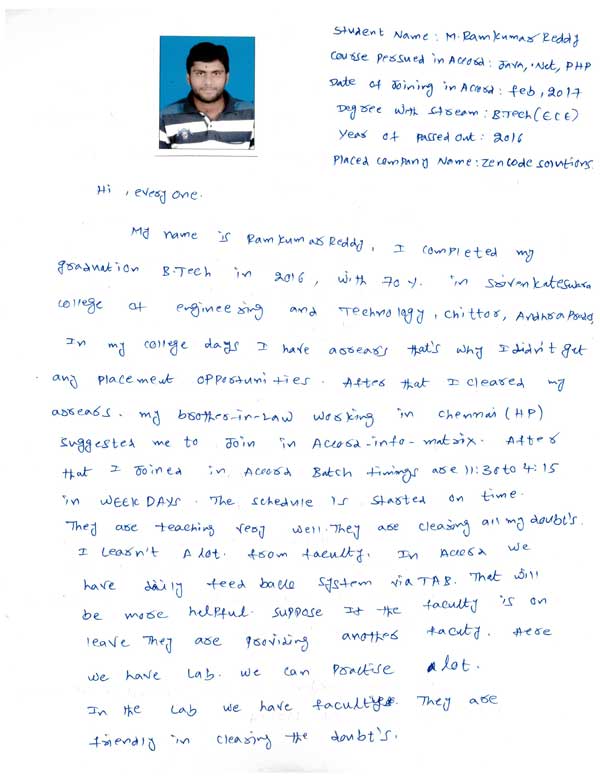 Student Name : M. Ramkumar Reddy
Course persued in Accord : Java, .Net, PHP
Date of Joining in Accord : feb, 2017
Degree with stream : B.Tech (ECE)
Year of passed out : 2016
Placed Company Name : Zencode solutions.
Hi , every one.
My name is Ramkumar Reddy, I completed my
graduation B.Tech in 2016, with 70%. in Srivenkateswara
college of engineering and Technology, chittor, Andhra Prades,
In my college days I have arrears that's why I didn't get
any placement opportunities. After that I cleared my
arrears. my brother-in-law working in chennai (HP)
suggested me to Join in Accord-info-matrix. After
that I Joined in Accord Batch timings are 11:30 to 4:15
in WEEK DAYS. The schedule is started on time.
They are teaching very well. They are clearing all my doubt's.
I learn't A lot. from faculty. In Accord we
have daily feed back system via TAB. That will
be more helpful. suppose If the faculty is on
leave They are providing another facuty. Here
we have Lab. we can Practise a lot.
In the Lab we have facultyes. They are
friendly in clearing the doubt's.